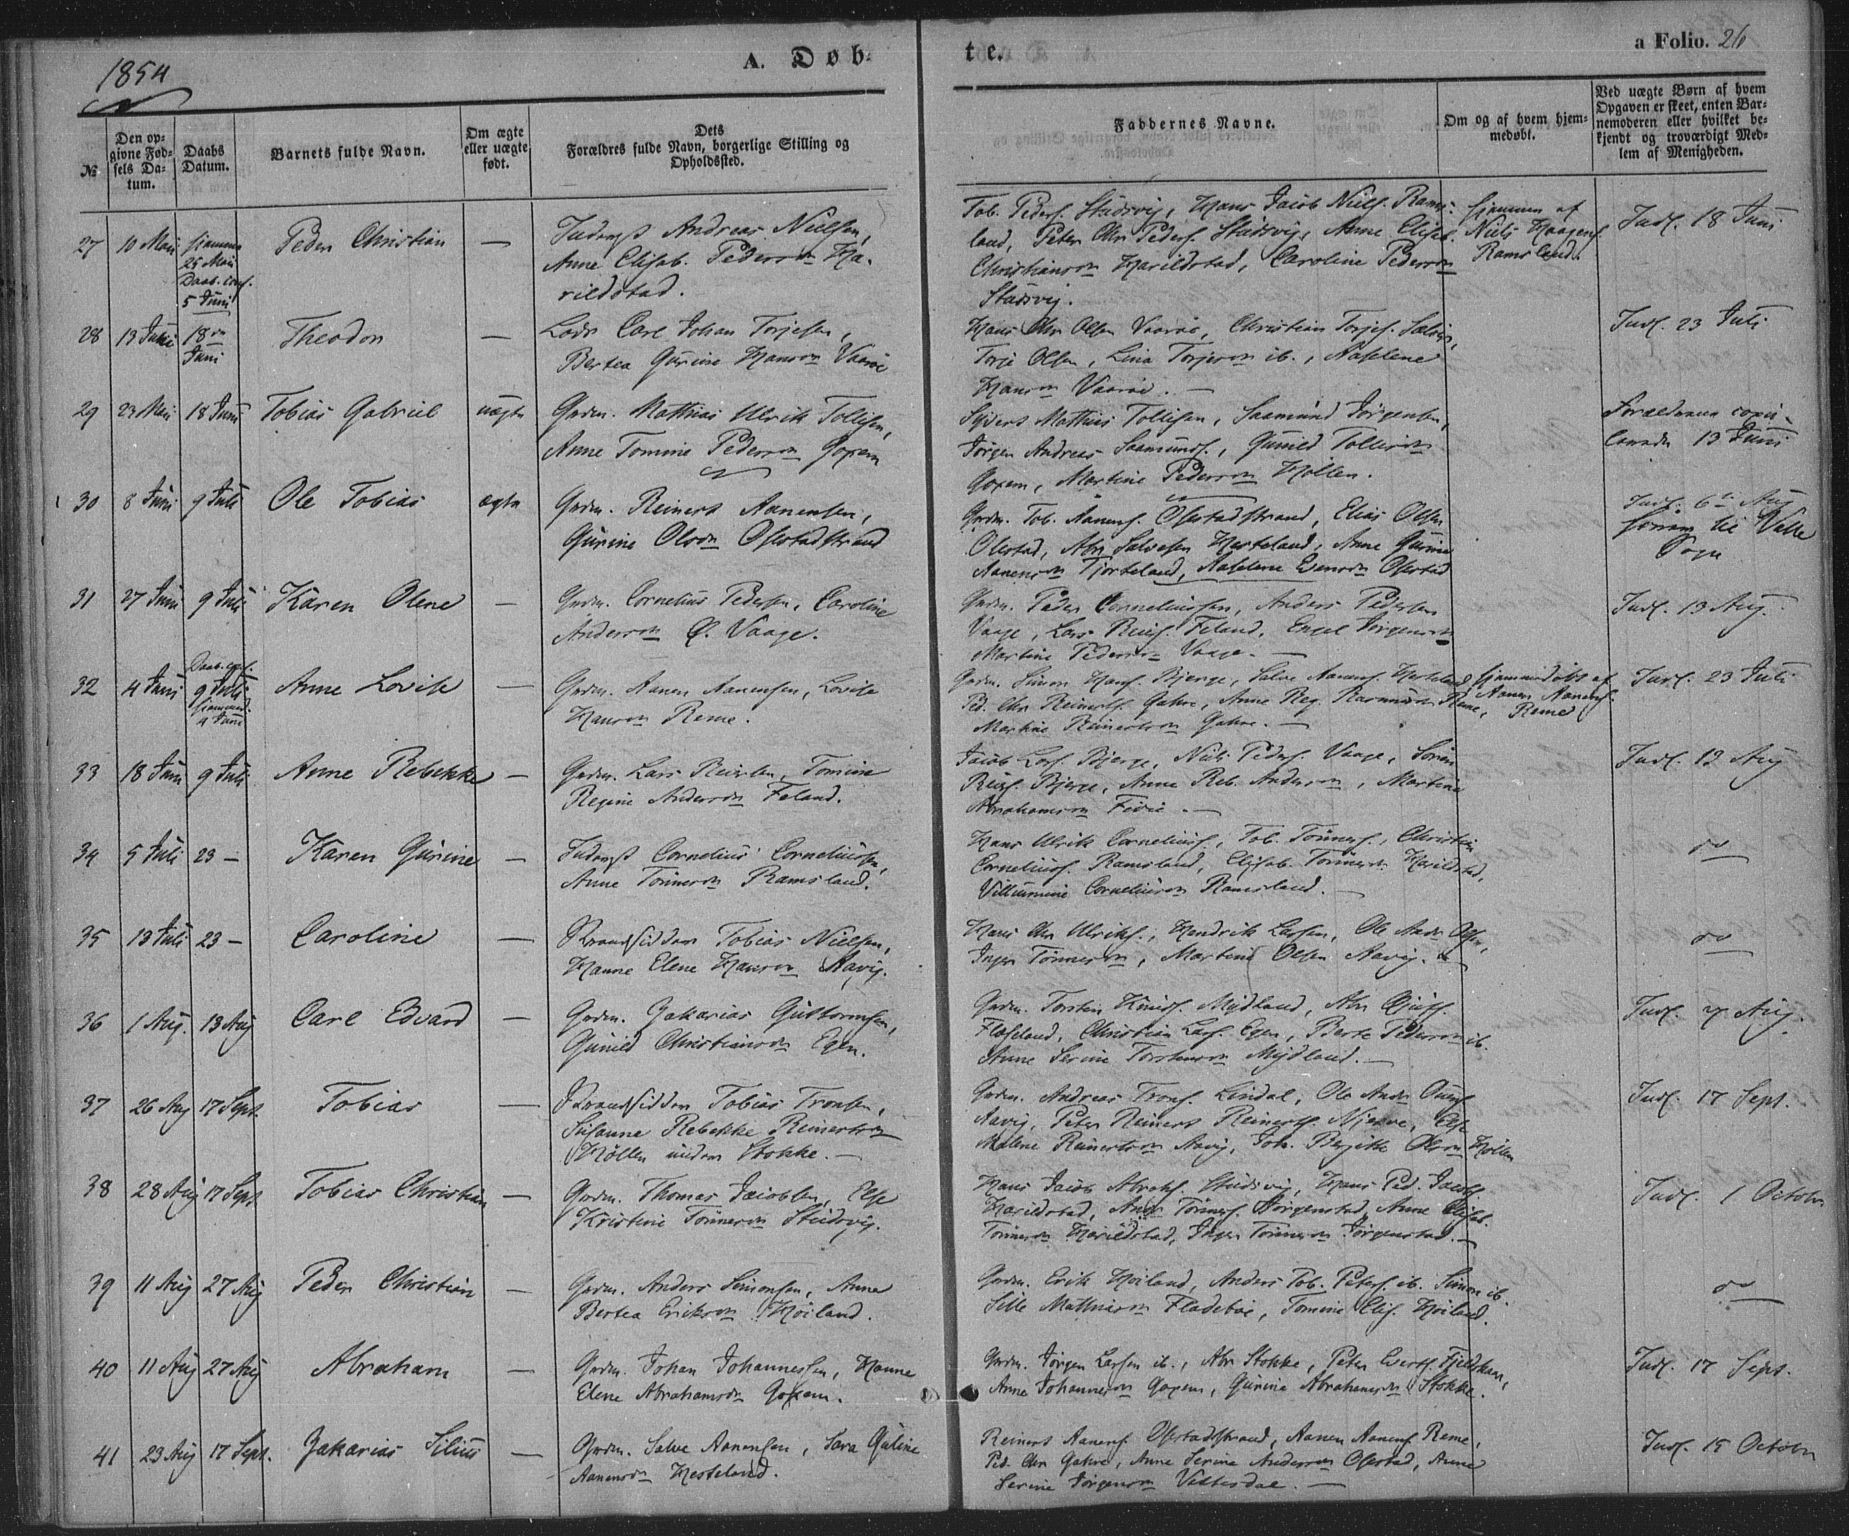 1854
A. Døb-
te.
a Folio. 26
№
Den op-
givne Fød-
sels Da-
tum.
Daabs
Datum.
Barnets fulde Navn.
Om ægte
eller uægte
født.
Dets
Forældres fulde Navn, borgerlige Stilling og
Opholdssted.
Faddernes Navne.
Om og af hvem hjem-
medøbt.
Ved uægte Børn af hvem
Opgaven er skeet, enten Bar-
nemoderen eller hvilket be-
kjendt og troværdigt Med-
lem af Menigheden.
27 10 Mai hjemme
25 Mai
Daab. conf.
5 Juni
Peder Christian —
Andreas Nielsen,
Anne Elisab. Pedersdn Ha-
rildstad.
Tob. Peders. Studsvig, Hans Jacob Niels. Rams-
land, Peter Chr Peders. Studsvig, Anne Elisab.
Christiansdn Harildstad, Caroline Pedersdn
Studsvig.
hjemme af
Niels Haagens.
Ramsland.
Indl. 18 Juni
28 13 Juni 18 Juni Theodor —
Lods Carl Johan Torjesen,
Bertea Gurine Hansdn Vaarøe
Hans Chr Olsen Vaarøe, Christian Torjes.
Torje Olsen, Lina Torjesdn ib., Aaselene
Hansdn Vaarøe. —
Indl. 23 Juli
29 23 Mai 18 Juni Tobias Gabriel uægte
Gudm. Mathias Ulrik Tollisen,
Anne Tomine Pedersdn Goxem
Syvert Mathias Tollisen, Saamund Jørgensen,
Jørgen Andreas Saamunds., Gunild Tollisdn
Goxem, Martine Pedersdn Høllen.
Forældrene copu-
lerede 13 Juni
30 8 Juni 9 Juli Ole Tobias ægte
Gudm. Reinert Aanensen,
Gurine Olsdn Ofstadstrand
Gudm. Tob. Aanens. Ofstadstrand, Elias Olsen
Olestad, Abr Salvesen Hesteland, Anne Gurine
Aanensdn Fjorteland, Aaselene Evensdn Ofstad
Indl. 6te Aug
til Valle
Sogn
31 27 Juni 9 Juli Karen Olene —
Gudm. Cornelius Pedersen, Caroline
Andersdn Ø. Vaage.
Gudm. Peder Corneliussen, Anders Pedersen
Vaage, Lars Reiers. Feland, Engel Jørgensdn
Martine Pedersdn Vaage. —
Indl. 13 Aug.
32 4 Juni Daab. conf.
9 Juli
hjemmed.
4 Juni
Anne Lovise —
Gudm. Aanen Aanensen, Lovise
Hansdn Reme.
Gudm. Simon Hans. Bjerge, Salve Aanens. Hesteland
Ped. Chr Reinerts. Gahre, Anne Reg. Rasmusdn Reme,
Martine Reinertsdn Gahre. —
hjemmedøbt af
Aanen Aanens.
Reme
Indl. 23 Juli
33 18 Juni 9 Juli Anne Rebekke —
Gudm. Lars Reiersen, Tomine
Regine Andersdn Feland.
Jacob Lars. Bjerge, Niels Peders. Vaage, Søren
Reiers. Bjerge, Anne Reb. Andersdn, Martine
Abrahamsdn —
Indl. 13 Aug
34 5 Juli 23 — Karen Gurine —
Cornelius Corneliussen,
Anne Tønnesdn Ramsland.
Hans Ulrik Cornelius., Tob. Tønnes., Christian
Cornelius. Ramsland, Elisab. Tønnesdn Harildstad,
Villumine Corneliusdn Ramsland. —
do
35 13 Juli 23 — Caroline —
Strandsidder Tobias Nielsen,
Hanne Elene Hansdn Aavig.
Hans Chr Ulriks., Hendrik Larsen, Ole Andr
Inger Tønnesdn, Martine Olsen Aavig. —
do
36 1 Aug. 13 Aug Carl Edvard —
Gudm. Zakarias Guttormsen,
Gunild Christiansdn Egen.
Gudm. Torsten Knuds. Mydland, Abr
Christian Lars. Egen, Berte Pedersdn ib.
Anne Serine Torstensdn Mydland. —
Indl. 7 Aug.
37 26 Aug 17 Sept. Tobias —
Strandsidder Tobias Tronsen,
Susanne Rebekke Reinertsdn
Møllen under Stokke. —
Gudm. Andreas Trons. Lindal, Ole Andr
Aavig, Peter Reinert Reinerts. Njerve, Else
Malene Reinertsdn Aavig, Joh. Bergitte Olsdn Høllen
Indl. 17 Sept.
38 28 Aug 17 Sept Tobias Christian —
Gudm. Thomas Jacobsen, Else
Kristine Tønnesdn Studsvig.
Hans Jacob Abrahs. Studsvig, Hans Ped. Jacobs.
Harildstad, Andr Tønnes. Jørgenstad, Anne Elisab.
Tønnesdn Harildstad, Inger Tønnesdn Jørgenstad. —
Indl. 1 October
39 11 Aug 27 Aug Peder Christian —
Gudm. Anders Simonsen, Anne
Bertea Ericksdn Høiland.
Gudm. Erik Høiland, Anders Tob. Peters. ib. Simon ib.
Sille Mathiasdn Fladebøe, Tomine Elis. Høiland.
do
40 11 Aug 27 Aug Abraham —
Gudm. Johan Johannessen, Hanne
Elene Abrahamsdn Goxem.
Gudm. Jørgen Larsen ib., Abr Stokke, Peter
Anne Johannesdn Goxem, Gurine Abrahamsdn Stokke.
Indl. 17 Sept.
41 23 Aug 17 Sept. Zakarias Silius —
Gudm. Salve Aanensen, Sara Guline
Aanensdn Hesteland.
Reinert Aanens. Ofstadstrand, Aanen Aanens. Reme,
Ped. Chr Gahre, Anne Serine Andersdn Ofstad, Anne
Serine Jørgensdn Valtersdal. —
Indl. 15 October